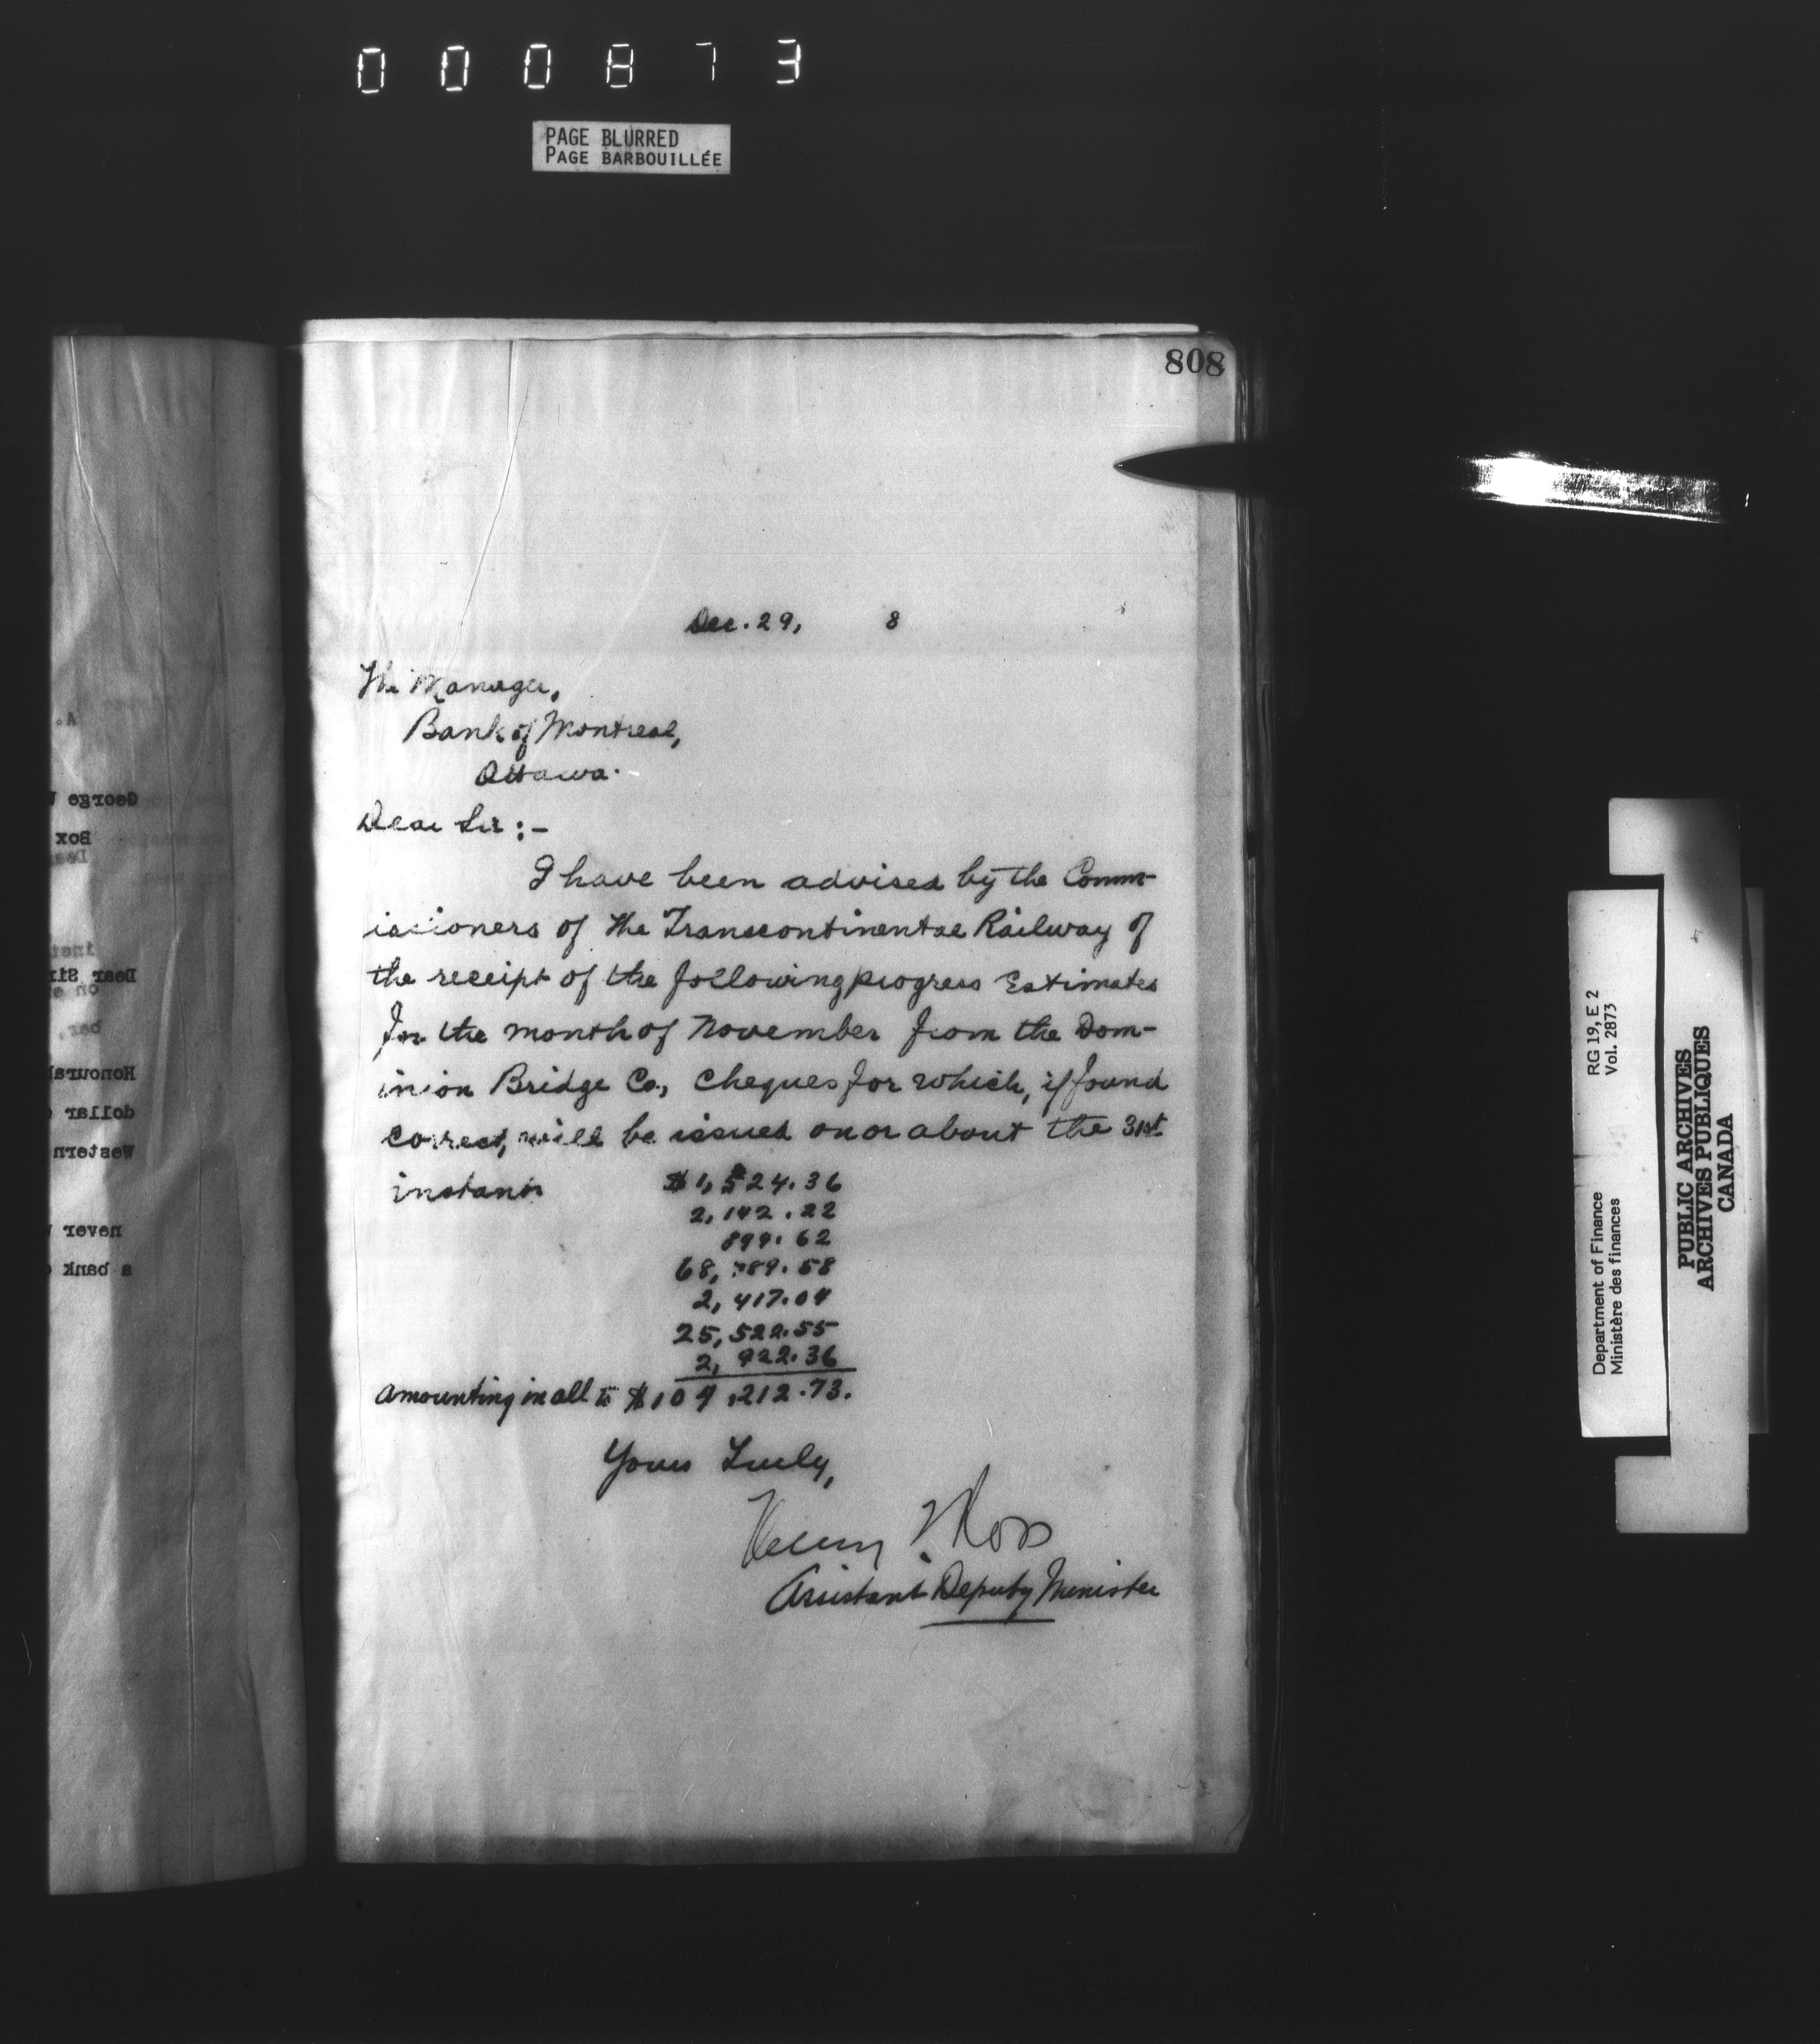 000873
PAGE BLURRED
PAGE BARBOUILLÉE
808
Dec. 29, 8
The Manager,
Bank of Montreal,
Ottawa.
Dear Sir :-
I have been advised by the Comm-
issioners of the Transcontinental Railway of
the receipt of the following progress Estimates
for the month of November from the Dom-
inion Bridge Co., Cheques for which, if found
correct, will be issued on or about the 31st
instant
$1,524.36
2,142.22
894.62
68,789.58
2,417.04
25,522.55
2,922.36
amounting in all to $104,212.73.
Yours Truly,
Henry T. Ross
Assistant Deputy Minister
A.
George
Box
Dear Sir
Honourabl
dollar
Western
never
a bank
Department of Finance RG 19, E 2
Ministère des finances Vol. 2873
PUBLIC ARCHIVES
ARCHIVES PUBLIQUES
CANADA